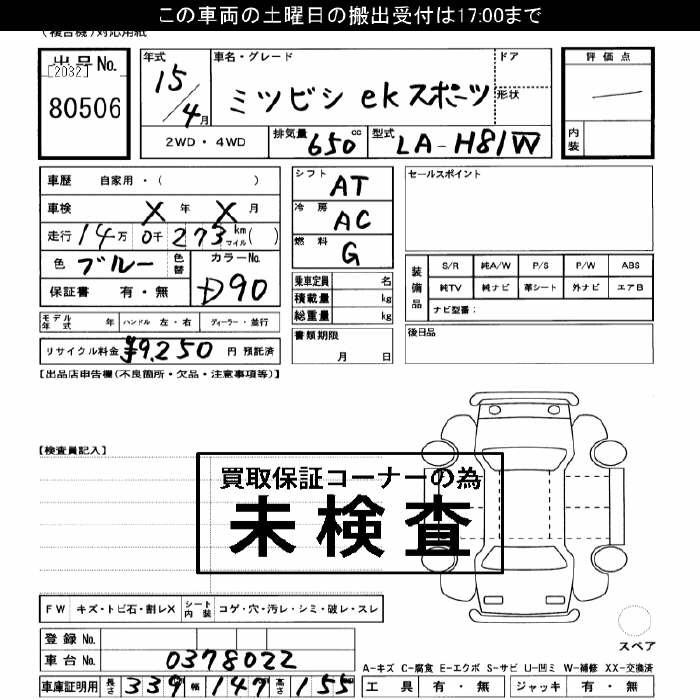 この車両の土曜日の搬出受付は17:00まで
(複合機)対応用紙
出品No.
[2032]
80506
年式 15/4月
車名・グレード ミツビシ ekスポーツ
ドア
形状
2WD・4WD
排気量 650 cc
型式 LA-H81W
評価点
内装
車歴 自家用・( )
車検 X 年 X 月
走行 14万 0千 273 km マイル ( )
色 ブルー 色替
カラーNo. D90
保証書 有・無
シフト AT
冷房 AC
燃料 G
乗車定員 名
積載量 kg
総重量 kg
書類期限
月 日
セールスポイント
装備品
S/R 純A/W P/S P/W ABS
純TV 純ナビ 革シート 外ナビ エアB
ナビ型番:
後日品
モデル年式 年 ハンドル 左・右 ディーラー・並行
リサイクル料金 ¥9,250 円 預託済
【出品店申告欄(不良箇所・欠品・注意事項等)】
【検査員記入】
買取保証コーナーの為
未検査
FW キズ・トビ石・割レX シート内装 コゲ・穴・汚レ・シミ・破レ・スレ
スペア
登録No.
車台No. 0378022
車庫証明用 長さ 339 幅 147 高さ 155
A-キズ C-腐食 E-エクボ S-サビ U-凹ミ W-補修 XX-交換済
工具 有・無 ジャッキ 有・無